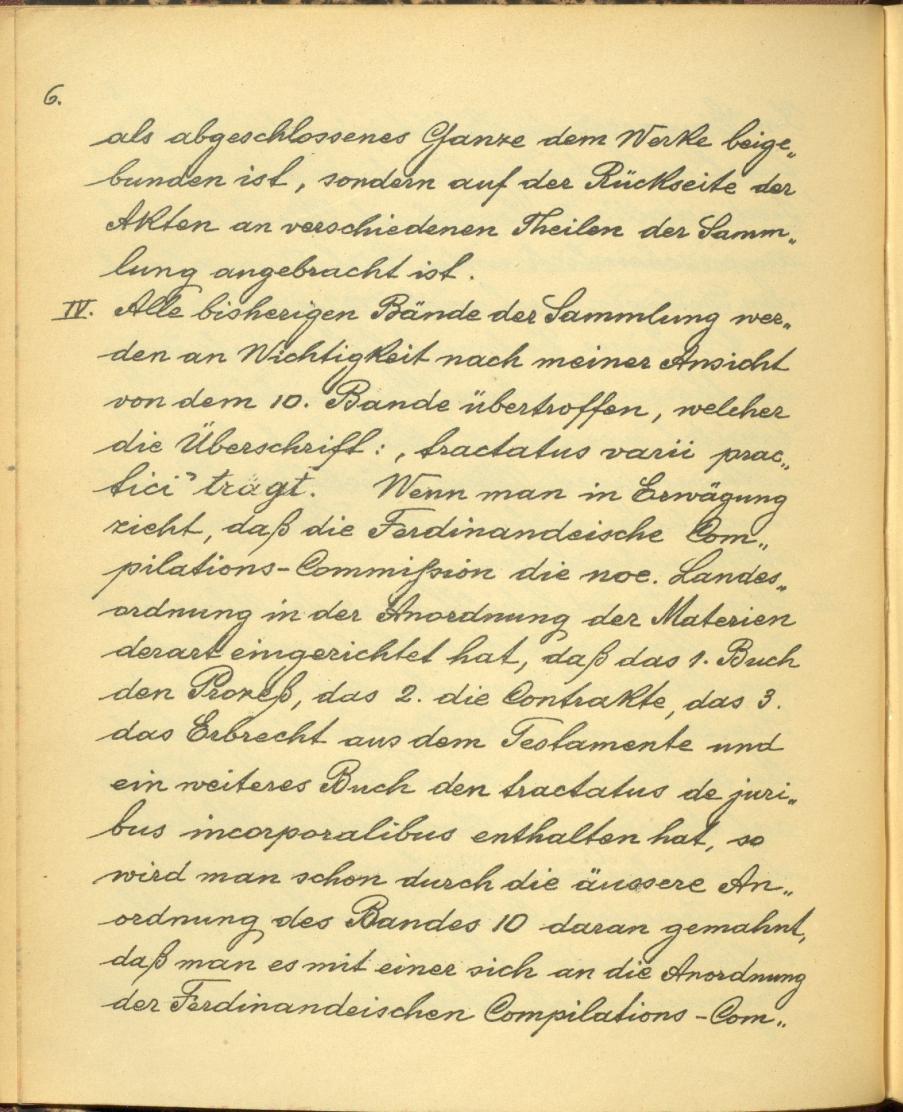 6.
als abgeschlossenes Ganze dem Werke beige„
bunden ist, sondern auf der Rückseite der
Akten an verschiedenen Theilen der Samm„
lung angebracht ist.
IV. Alle bisherigen Bände der Sammlung wer„
den an Wichtigkeit nach meiner Ansicht
von dem 10. Bande übertroffen, welcher
die Überschrift: ‚tractatus varii prac„
tici’ trägt. Wenn man in Erwägung
zieht, daß die Ferdinandeische Com„
pilations-Commißion die noe. Landes„
ordnung in der Anordnung der Materien
derart eingerichtet hat, daß das 1. Buch
den Prozeß, das 2. die Contrakte, das 3.
das Erbrecht aus dem Testamente und
ein weiteres Buch den tractatus de juri„
bus incorporalibus enthalten hat, so
wird man schon durch die äussere An„
ordnung des Bandes 10 daran gemahnt,
daß man es mit einer sich an die Anordnung
der Ferdinandeischen Compilations-Com„